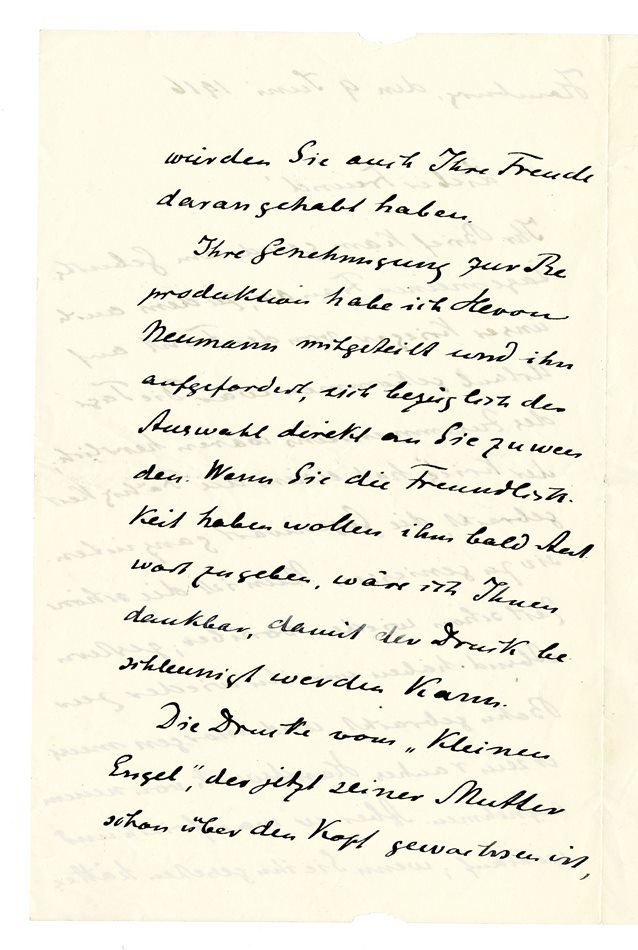 würden Sie auch Ihre Freude
daran gehabt haben.
Ihre Genehmigung zur Re
produktion habe ich Herrn
Neumann mitgeteilt und ihn
aufgefordert, sich bezüglich der
Auswahl direkt an Sie zu wen
den. Wenn Sie die Freundlich-
keit haben wollen ihm bald Ant
wort zu geben, wäre ich Ihnen
dankbar, damit der Druck be
schleunigt werden kann.
Die Drucke vom „Kleinen
Engel", der jetzt seiner Mutter
schon über den Kopf gewachsen ist,